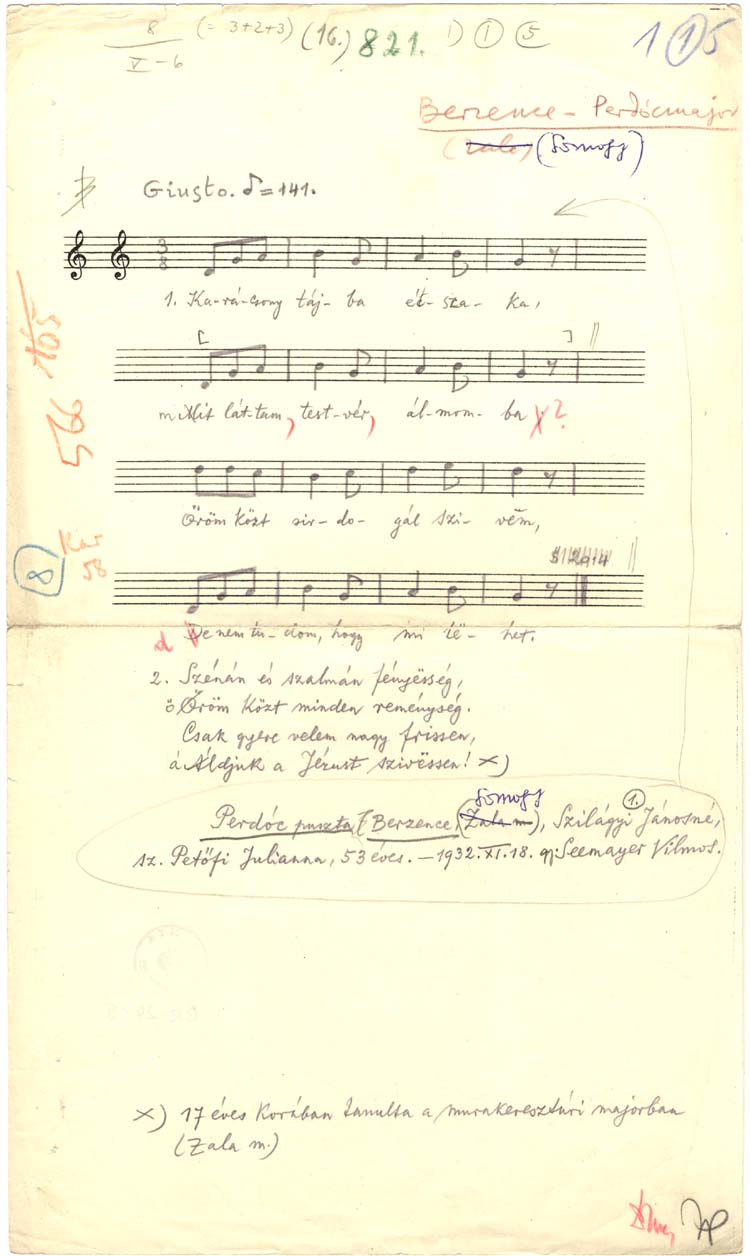 8 (= 3+2+3) (16.) 821. 1) ① ⑤ 1 ① 5
V-6
Berzence - Perdócmajor
(Zala) (Somogy)
Giusto. ♪=141.
3/8
1. Ka-rá-csony táj-ba ét-sza-ka,
[ ]
m Mit lát-tam, test-vér, ál-mom-ba?
Öröm közt sir-do-gál szi-vëm,
566 165
Kar 58
8
d De nem tu-dom, hogy mi lë-het.
2. Szénán és szalmán fényësség,
ö Öröm közt minden reménység.
Csak gyere velem nagy frissen,
á Áldjuk a Jézust szivëssen! x)
Somogy 1.
Perdóc puszta, [Berzence, (Zala m.), Szilágyi Jánosné,
sz. Petőfi Julianna, 53 éves. - 1932. XI. 18. gy: Seemayer Vilmos.
x) 17 éves korában tanulta a murakeresztúri majorban
(Zala m.)